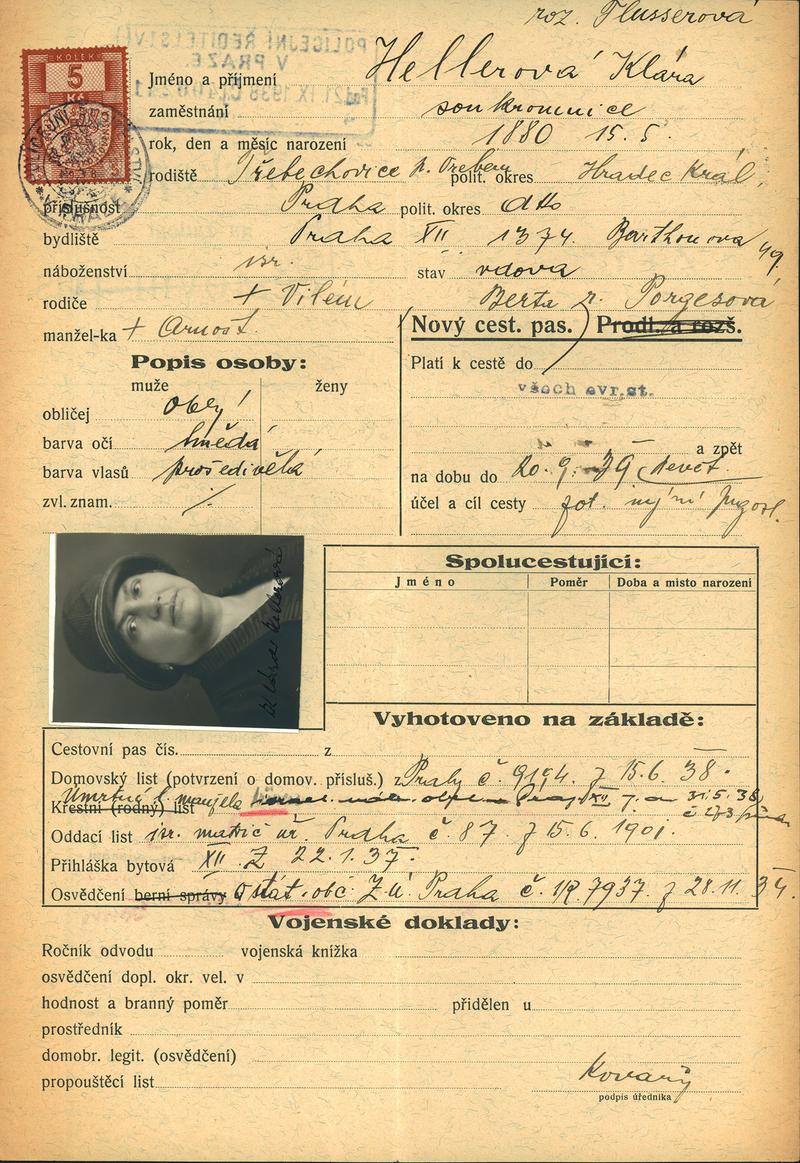 roz. Flusserová
KOLEK
5
Kčs
POLICEJNÍ ŘEDITELSTVÍ
V PRAZE.
21. IX. 1938
Jméno a příjmení Hellerová Klára
zaměstnání soukromnice
rok, den a měsíc narození 1880 15. 5.
rodiště Třebechovice p. Orebem polit. okres Hradec Král.
příslušnost Praha polit. okres dtto
bydliště Praha XII 1374 Barthonova 49.
náboženství isr. stav vdova
rodiče + Vilém Berta r. Porgesová
manžel-ka + Arnošt. Nový cest. pas. Prodl. a rozš.
Popis osoby: Platí k cestě do
muže ženy všech evr. st.
obličej oblý
barva očí hnědá a zpět
barva vlasů prošedivělá na dobu do 20. 9. 39
zvl. znam. účel a cíl cesty
Klára Hellerová
Spolucestující:
Jméno Poměr Doba a místo narození
Vyhotoveno na základě:
Cestovní pas čís. z
Domovský list (potvrzení o domov. přísluš.) z Prahy č. z 15.6. 38.
Úmrtní l. manžela
Křestní (rodný) list XII 31.5. 38
Oddací list isr. matič. úř. Praha č. 87 z 15.6. 1901.
Přihláška bytová XII. Z 22.1.37.
Osvědčení berní správy o stát. obč. Z.ú. Praha č. 7937 z 28.11. 34.
Vojenské doklady:
Ročník odvodu vojenská knížka
osvědčení dopl. okr. vel. v
hodnost a branný poměr přidělen u
prostředník
domobr. legit. (osvědčení)
propouštěcí list Kovařý
podpis úředníka